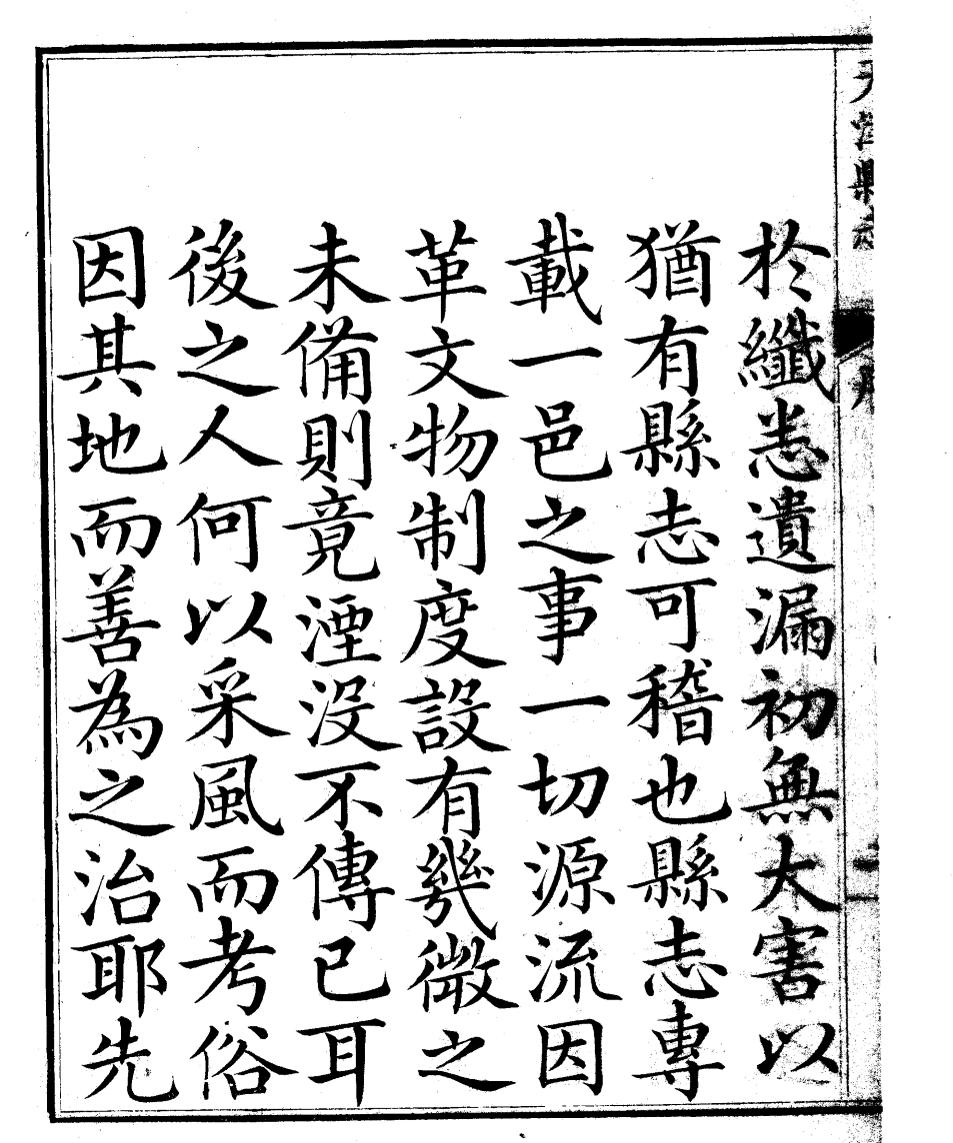 於纖悉遺漏初無大害以
猶有縣志可稽也縣志專
載一邑之事一切源流因
革文物制度設有幾微之
未備則竟湮沒不傳已耳
後之人何以采風而考俗
因其地而善為之治耶先